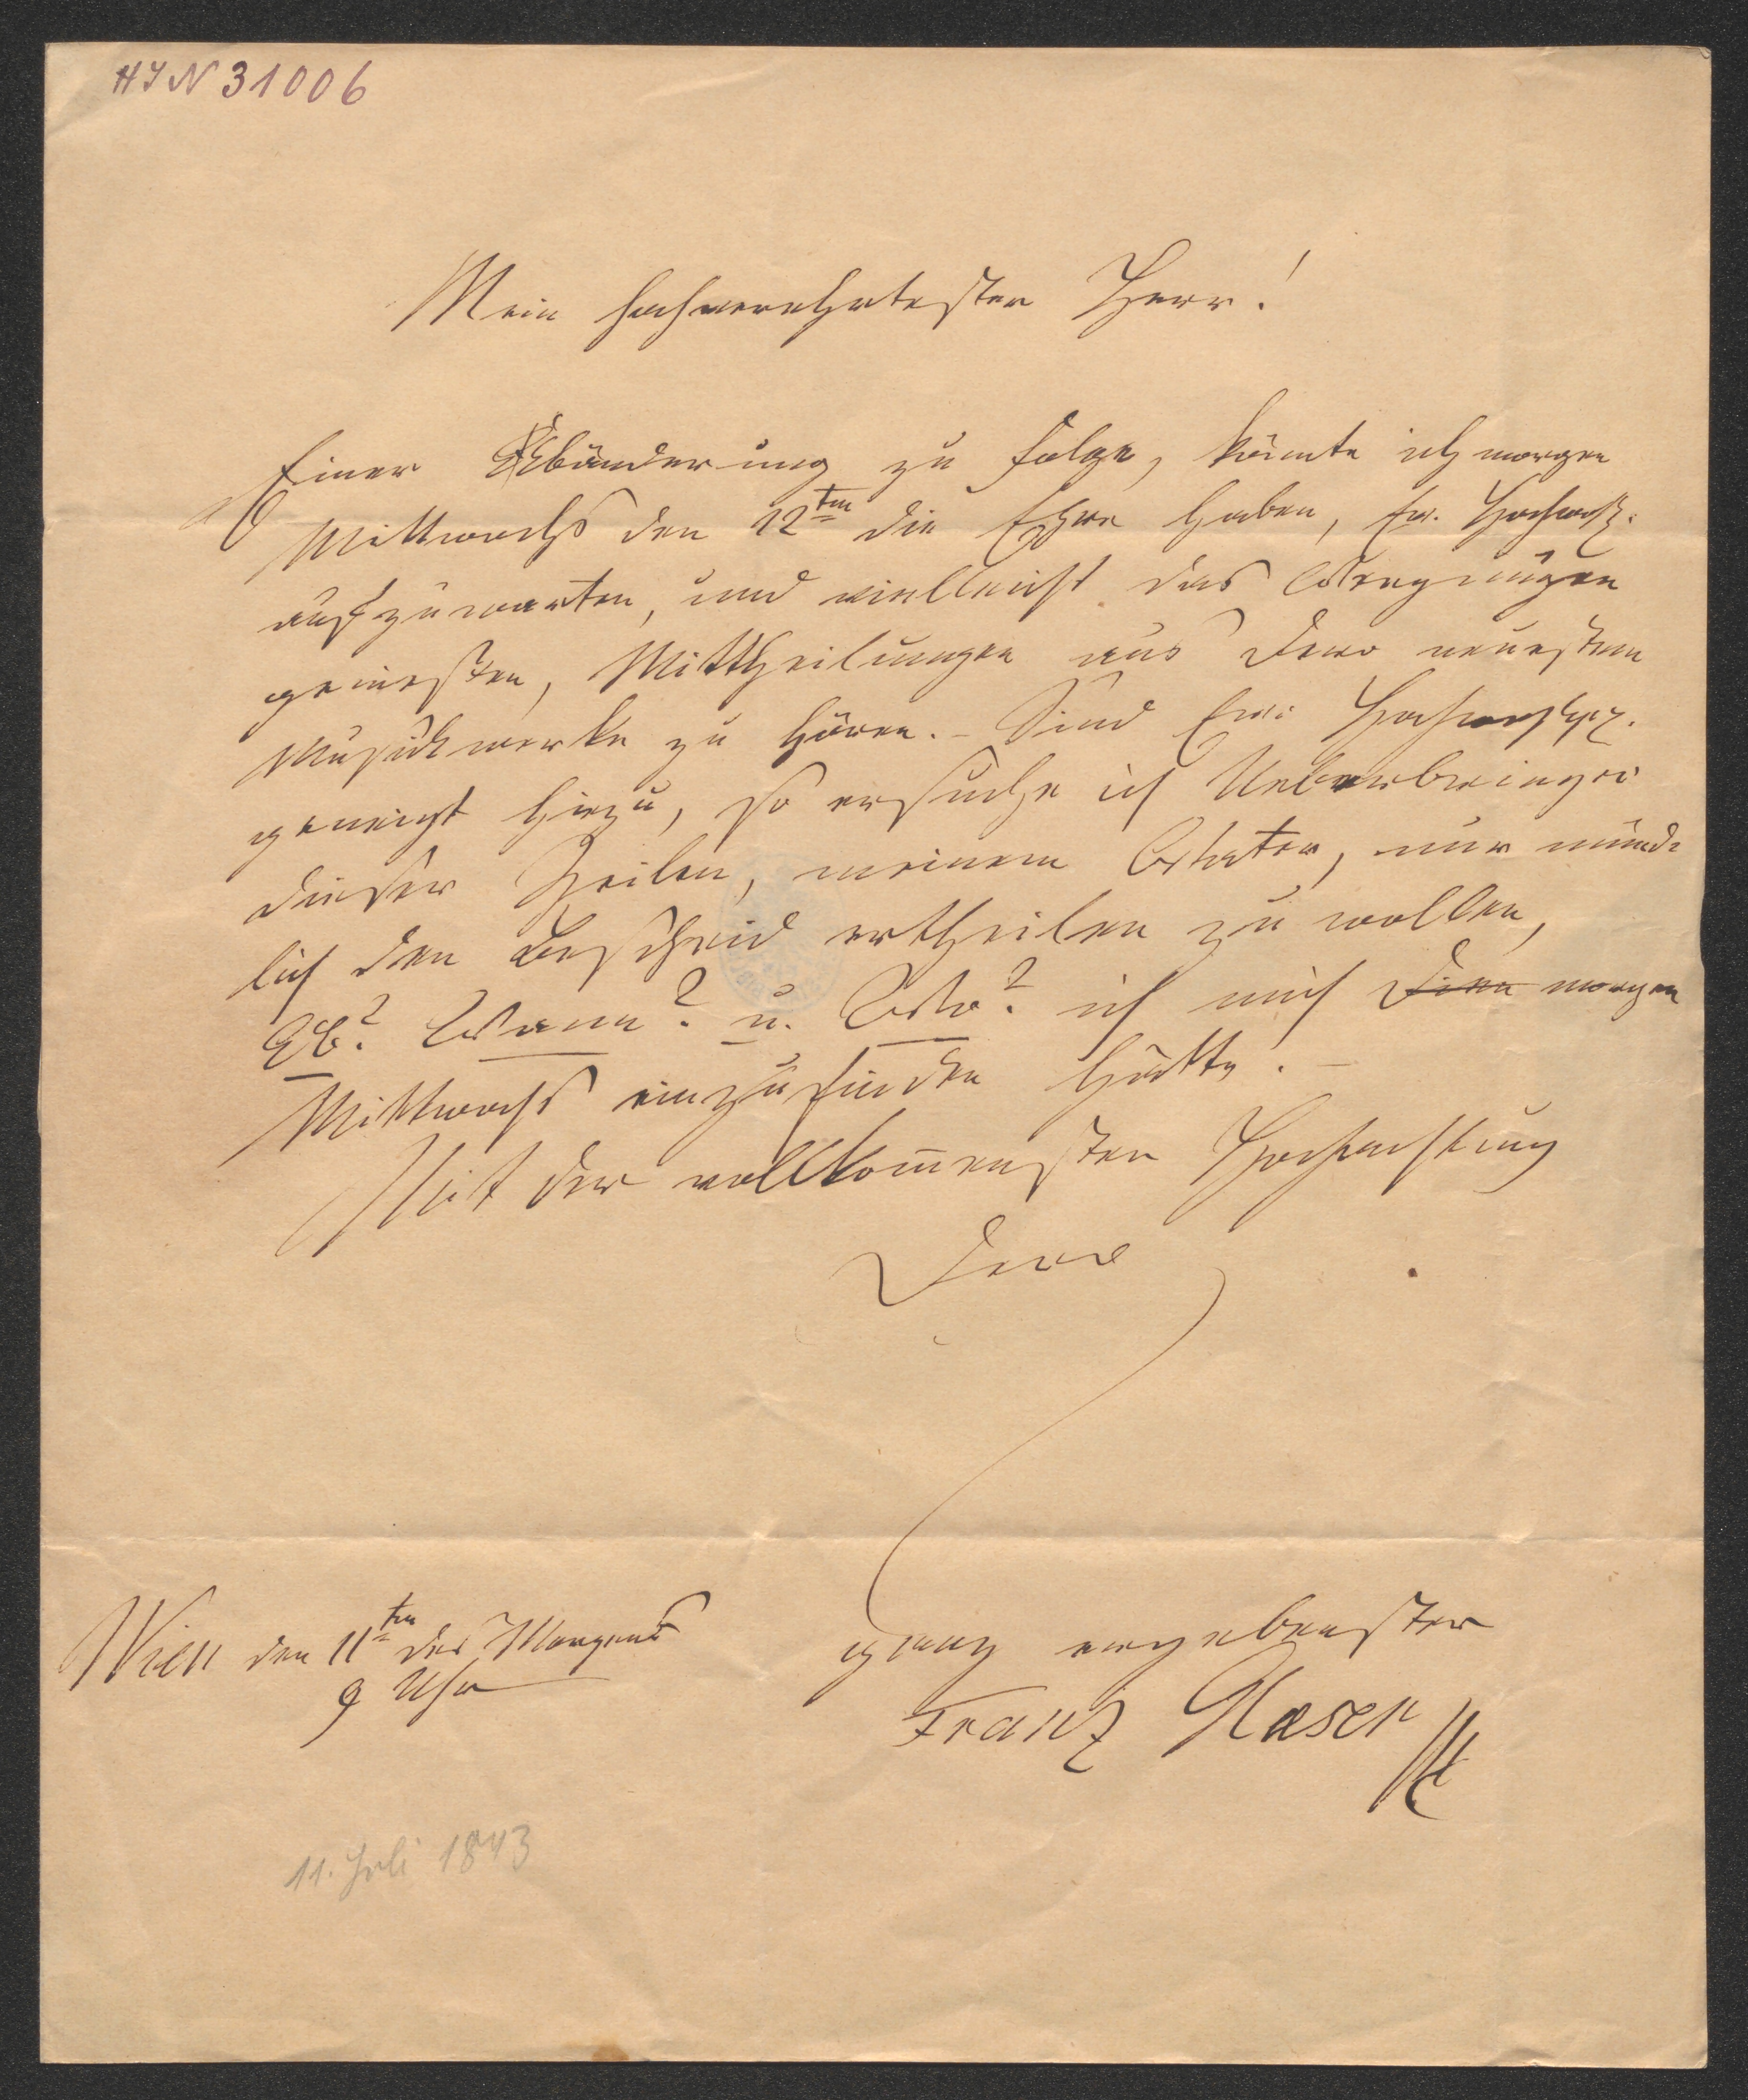 HIN 31006
Mein hochverehrtester Herr!
Einer Abänderung zu folge, könnte ich morgen
Mittwochs den 12ten die Ehre haben, Ew. Hochwohl.
aufzuwarten, und vielleicht das Vergnügen
genießen, Mittheilungen aus Dero neuestem
Musickwerke zu hören. – Sind Ew:
geneigt hiezu, so ersuche ich Ueberbringer
dieser Zeilen, meinem Vater, nur münd-
lich den Bescheid ertheilen zu wollen,
Ob? Wann? u. Wo? ich mich morgen
Mittwochs einzufinden hätte. –
Mit der vollkom̅ensten Hochachtung
Dero
ganz ergebenster
Franz Glaeser
Wien den 11ten des Morgens
9 Uhr
11. Juli 1843